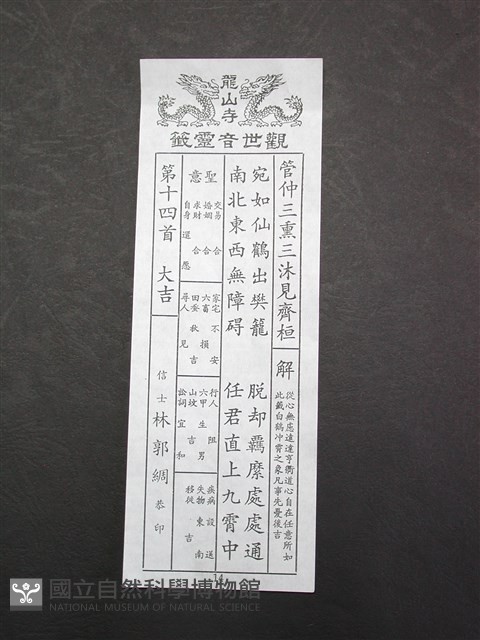 龍山寺
觀世音靈籤
管仲三熏三沐見齊桓
解
從心無慮達亨衢道心自在任意所如
此籤白鶴冲霄之象凡事先憂後吉
宛如仙鶴出樊籠
脱却羈縻處處通
南北東西無障碍
任君直上九霄中
聖意
交易 合
婚姻 合
求財
自身 還愿
家宅 不安
六畜 損
田蚕 秋吉
尋人 見
行人 阻
六甲 生男
山坟 吉
訟詞 宜和
疾病 設送
失物 東南
移徙 吉
第十四首 大吉
信士 林郭綢 恭印
14
國立自然科學博物館
NATIONAL MUSEUM OF NATURAL SCIENCE